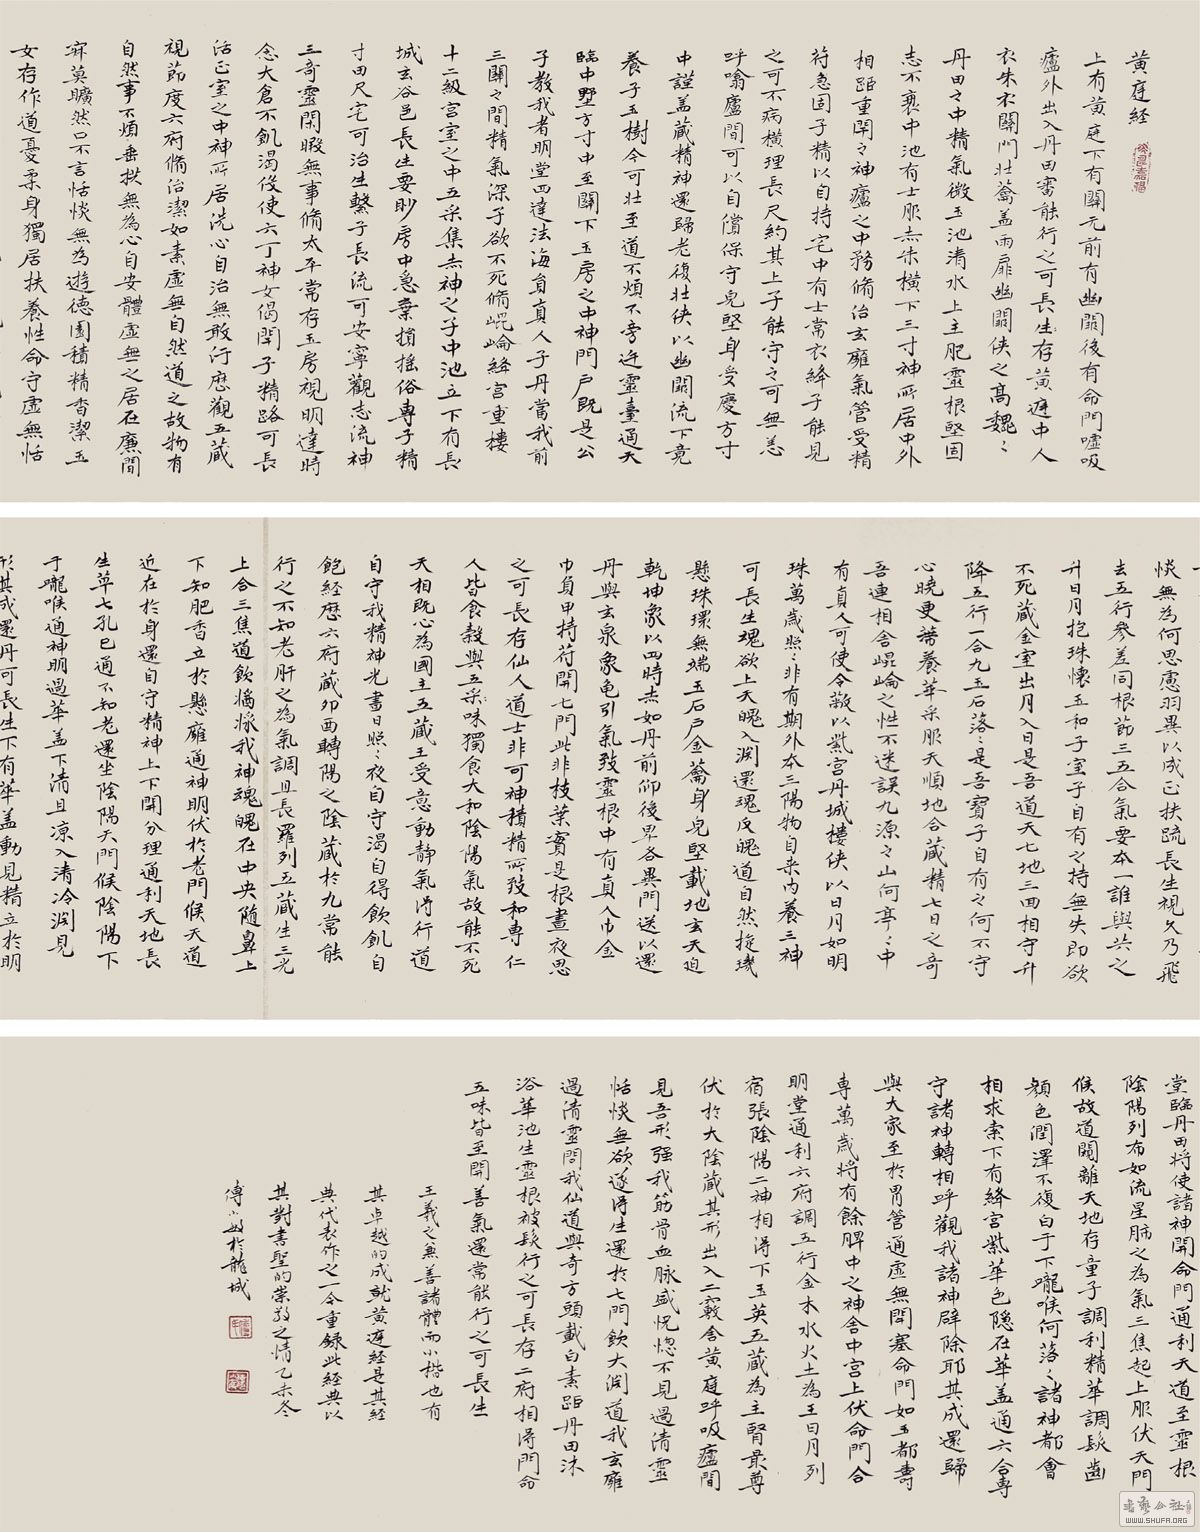 黃庭經
上有黃庭下有關元前有幽闕後有命門噓吸
廬外出入丹田審能行之可長生存黃庭中人
衣朱衣關門壯蘥蓋兩扉幽闕俠之高魏〻
丹田之中精氣微玉池清水上主肥靈根堅固
志不衰中池有士服赤朱橫下三寸神所居中外
相距重閉之神廬之中務脩治玄廱氣管受精
符急固子精以自持宅中有士常衣絳子能見
之可不病橫理長尺約其上子能守之可無恙
呼噏廬間可以自償保守皃堅身受慶方寸
中謹蓋藏精神還歸老復壯俠以幽闕流下竟
養子玉樹令可壯至道不煩不旁迕靈臺通天
臨中野方寸中至關下玉房之中神門戶既是公
子教我者明堂四達法海員真人子丹當我前
三關之間精氣深子欲不死脩崐崘絳宮重樓
十二級宮室之中五采集赤神之子中池立下有長
城玄谷邑長生要眇房中急棄捐搖俗專子精
寸田尺宅可治生繫子長流可安寧觀志流神
三奇靈閑暇無事脩太平常存玉房視明達時
念大倉不飢渴伇使六丁神女偈閉子精路可長
活正室之中神所居洗心自治無敢汙歷觀五藏
視節度六府脩治潔如素虛無自然道之故物有
自然事不煩垂拱無為心自安體虛無之居在廉間
寂莫曠然口不言恬惔無為遊德園積精香潔玉
女存作道憂柔身獨居扶養性命守虛無恬
惔無為何思慮羽翼以成正扶疏長生視久乃飛
去五行參差同根節三五合氣要本一誰與共之
升日月抱珠懷玉和子室子自有之持無失即欲
不死藏金室出月入日是吾道天七地三回相守升
降五行一合九玉石落〻是吾寶子自有之何不守
心曉更蒂養華采服天順地合藏精七日之奇
吾連相舍崐崘之性不迷誤九源之山何亭〻中
有真人可使令蔽以紫宮丹城樓俠以日月如明
珠萬歲照〻非有期外本三陽物自來內養三神
可長生魂欲上天魄入淵還魂反魄道自然旋璣
懸珠環無端玉石戶金蘥身皃堅載地玄天迫
乾坤象以四時赤如丹前仰後卑各異門送以還
丹與玄泉象龜引氣致靈根中有真人巾金
巾負甲持符開七門此非枝葉實是根晝夜思
之可長存仙人道士非可神積精所致和專仁
人皆食穀與五味獨食大和陰陽氣故能不死
天相既心為國主五藏王受意動靜氣得行道
自守我精神光晝日照〻夜自守渴自得飲飢自
飽經歷六府藏卯酉轉陽之陰藏於九常能
行之不知老肝之為氣調且長羅列五藏生三光
上合三焦道飲醬漿我神魂魄在中央隨鼻上
下知肥香立於懸廱通神明伏於老門候天道
近在於身還自守精神上下開分理通利天地長
生草七孔已通不知老還坐陰陽天門候陰陽下
于嚨喉通神明過華蓋下清且涼入清冷淵見
形其成還丹可長生下有華蓋動見精立於明
堂臨丹田將使諸神開命門通利天道至靈根
陰陽列布如流星肺之為氣三焦起上服伏天門
候故道闚離天地存童子調利精華調髮齒
顏色潤澤不復白于下嚨喉何落〻諸神都會
相求索下有絳宮紫華色隱在華蓋通六合專
守諸神轉相呼觀我諸神辟除耶其成還歸
與大家至於胃管通虛無閉塞命門如玉都壽
專萬歲將有餘脾中之神舍中宮上伏命門合
明堂通利六府調五行金木水火土為王日月列
宿張陰陽二神相得下玉英五藏為主腎最尊
伏於大陰藏其形出入二竅舍黃庭呼吸廬間
見吾形强我筋骨血脉盛怳惚不見過清靈
恬惔無欲遂得生還於七門飲大淵道我玄廱
過清靈問我仙道與奇方頭載白素距丹田沐
浴華池生靈根被髮行之可長存二府相得開命門
五味皆至開善氣還常能行之可長生
王羲之兼善諸體而小楷也有
其卓越的成就黃庭經是其經
典代表作之一今重錄此經典以
其對書聖的崇敬之情乙未冬
傅小敏於龍城
WWW.SHUFA.ORG